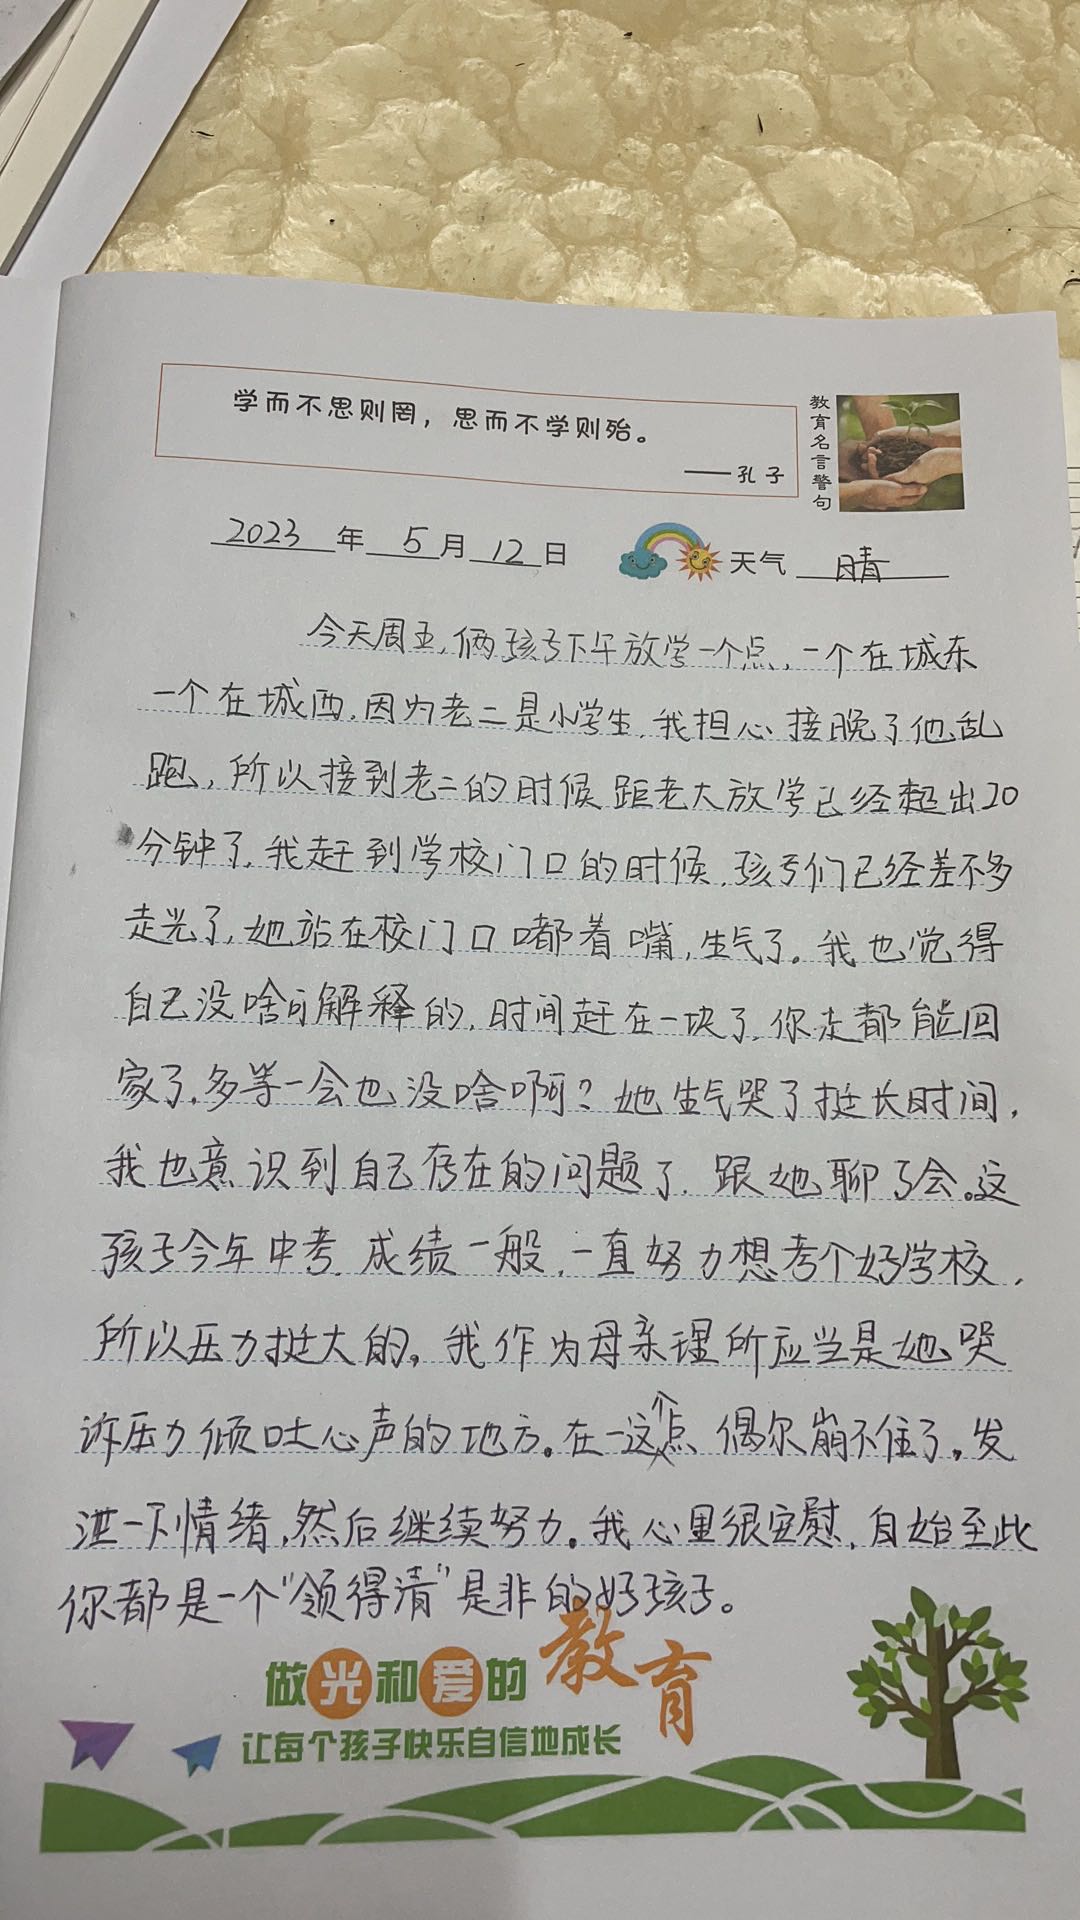 学而不思则罔，思而不学则殆。
——孔子
教育名言警句
2023年5月12日 天气 晴
今天周五，俩孩子下午放学一个点，一个在城东
一个在城西，因为老二是小学生，我担心接晚了他乱
跑，所以接到老二的时候距老大放学已经超出20
分钟了，我赶到学校门口的时候，孩子们已经差不多
走光了，她站在校门口嘟着嘴，生气了。我也觉得
自己没啥可解释的，时间赶在一块了，你走都能回
家了，多等一会也没啥啊？她生气哭了挺长时间，
我也意识到自己存在的问题了，跟她聊了会。这
孩子今年中考，成绩一般，一直努力想考个好学校，
所以压力挺大的，我作为母亲理所应当是她哭
诉压力倾吐心声的地方。在一这个点偶尔崩不住了，发
泄一下情绪，然后继续努力。我心里很安慰，自始至此
你都是一个“领得清”是非的好孩子。
做光和爱的教育
让每个孩子快乐自信地成长